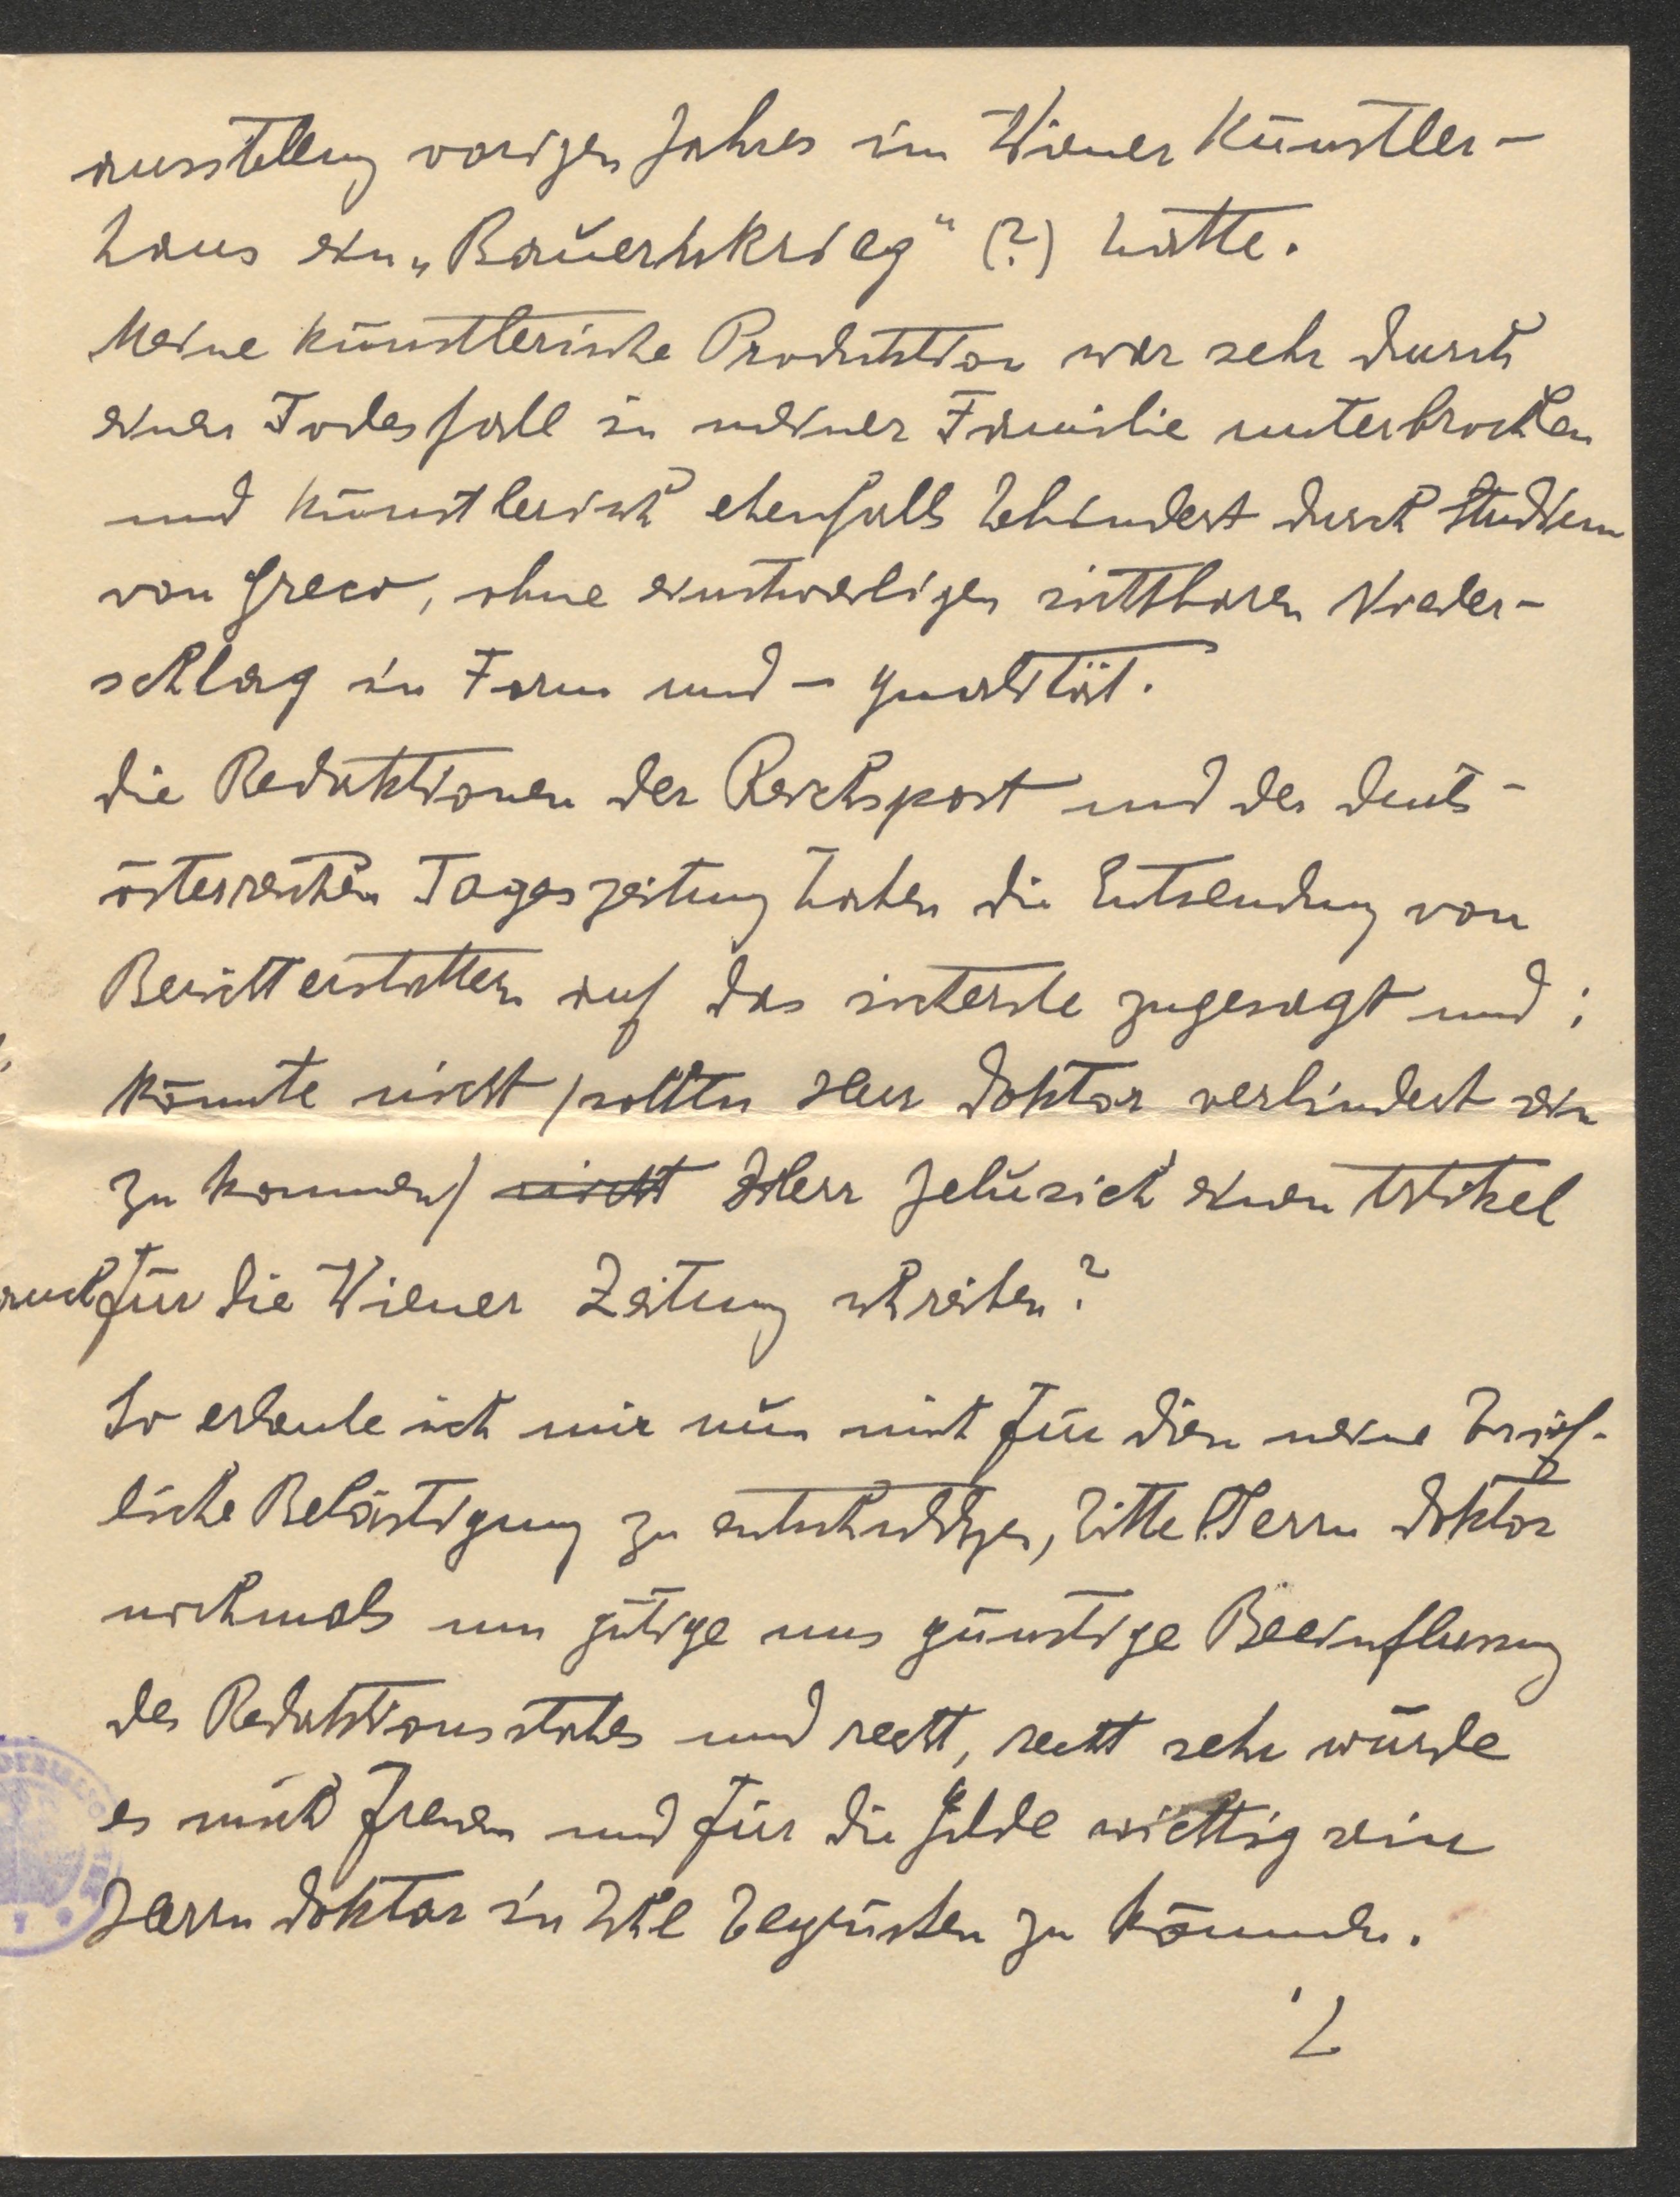 ausstellung vorigen Jahres im Wiener Künstler-
haus ein „Bauernkrieg" (?) hatte.
Meine künstlerische Produktion war sehr durch
einen Todesfall in meiner Familie unterbrochen
und künstlerisch ebenfalls behindert durch Studium
von Greco, ohne einstweiligen sichtbaren Nieder-
schlag in Form und – Qualität.
die Redaktionen der Reichspost und der deuts-
österreichen Tageszeitung haben die Entsendung von
Berichterstattern auf das sicherste zugesagt und ;
könnte nicht /sollten Herr Doktor verhindert sein
zu kommen/ nicht Herr Jelusich einen Artikel
auch für die Wiener Zeitung schreiben?
So erlaube ich mir nun mich für diese meine brief-
liche Belästigung zu entschuldigen, bitte Herrn Doktor
nochmals um gütige uns günstige Beeinflussung
des Redaktionsstabes und recht, recht sehr würde
es mich freuen und für die Gilde wichtig sein
Herrn Doktor in begrüssen zu können.